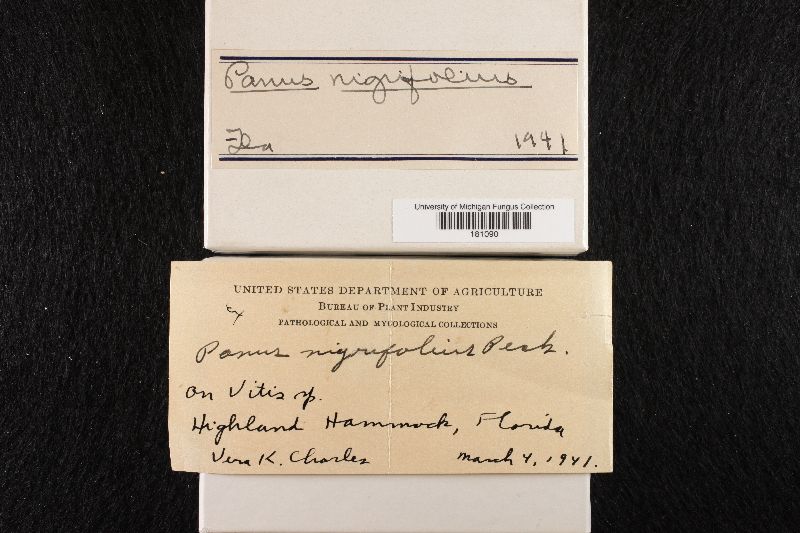 Panus nigrifolius
Fla 1941
University of Michigan Fungus Collection
181090
UNITED STATES DEPARTMENT OF AGRICULTURE
BUREAU OF PLANT INDUSTRY
PATHOLOGICAL AND MYCOLOGICAL COLLECTIONS
Panus nigrifolius Peck.
on Vitis sp.
Highland Hammock, Florida
Vera K. Charles March 4, 1941.